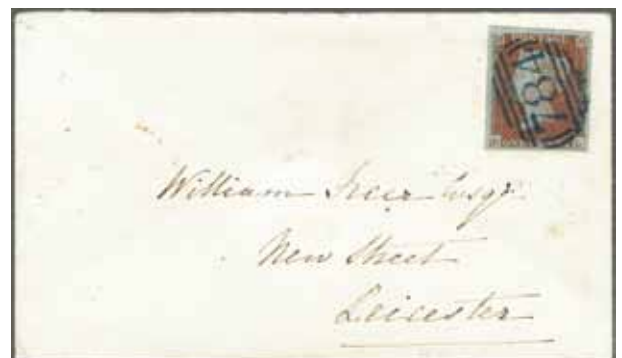 784
William Freer Esqr.
New Street
Leicester